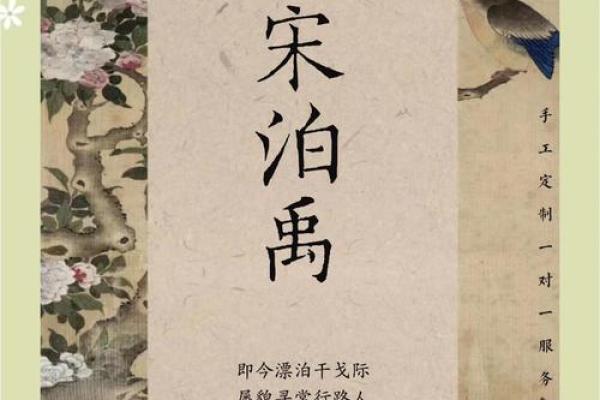 宋泊禹
手工定制一对一服务
即今漂泊干戈际
屡貌寻常行路人